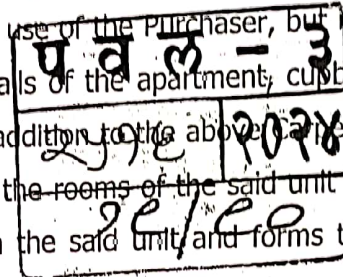 use of the Purchaser, but
पवल - ३
alls of the apartment, cupb
addition to the above carpe
२०२४
the rooms of the said unit
१८/८०
the said unit, and forms t